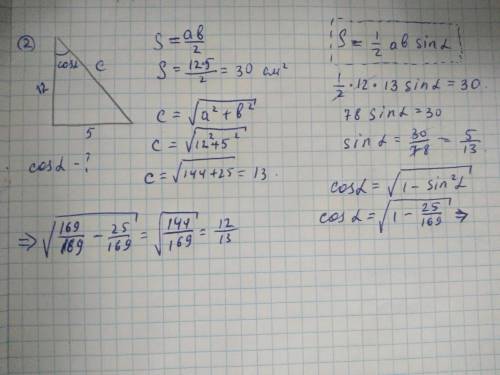 ②
cosα
12
c
5
cosα - ?
S = ab/2
S = 12·5/2 = 30 см²
c = √(a² + b²)
c = √(12² + 5²)
c = √(144 + 25) = 13.
S = 1/2 ab sinα
1/2 · 12 · 13 sinα = 30.
78 sinα = 30
sinα = 30/78 = 5/13.
cosα = √(1 - sin²α)
cosα = √(1 - 25/169) ⇒
⇒ √(169/169 - 25/169) = √(144/169) = 12/13